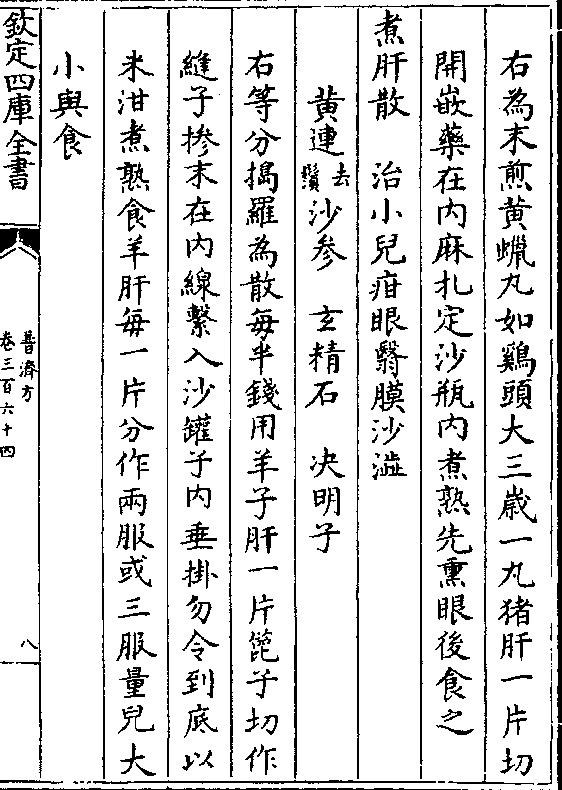 右為末煎黄蠟丸如鷄頭大三歳一丸猪肝一片切
開嵌藥在内麻扎定沙瓶内煮熟先熏眼後食之
煮肝散　治小兒疳眼翳膜沙澁
黄連去鬚沙参　玄精石　决明子
右等分搗羅為散毎半錢用羊子肝一片箆子切作
縫子摻末在内線繫入沙罐子内垂掛勿令到底以
米泔煮熟食羊肝毎一片分作兩服或三服量兒大
小與食
欽定四庫全書
普濟方
卷三百六十四
八